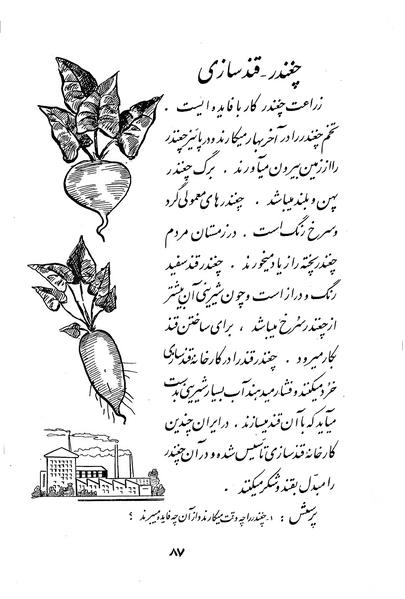 چغندر - قندسازی
زراعت چغندر کار با فایده‌ایست .
تخم چغندر را در آخر بهار میکارند و در پائیز چغندر
را از زمین بیرون میآورند . برگ چغندر
پهن و بلند میباشد . چغندرهای معمولی گرد
و سرخ رنگ است . در زمستان مردم
چغندر پخته را زیاد میخورند . چغندر قند سفید
رنگ و دراز است و چون شیرینی آن بیشتر
از چغندر سرخ میباشد ، برای ساختن قند
بکار میرود . چغندر قند را در کارخانه قندسازی
خرد میکنند و فشار میدهند آب بسیار شیرینی بدست
میآید که با آن قند میسازند . در ایران چندین
کارخانه قندسازی تأسیس شده و در آن چغندر
را مبدل بقند و شکر میکنند .
پرسش : ۱ - چغندر را چه وقت میکارند و از آن چه فایده میبرند ؟
۸۷